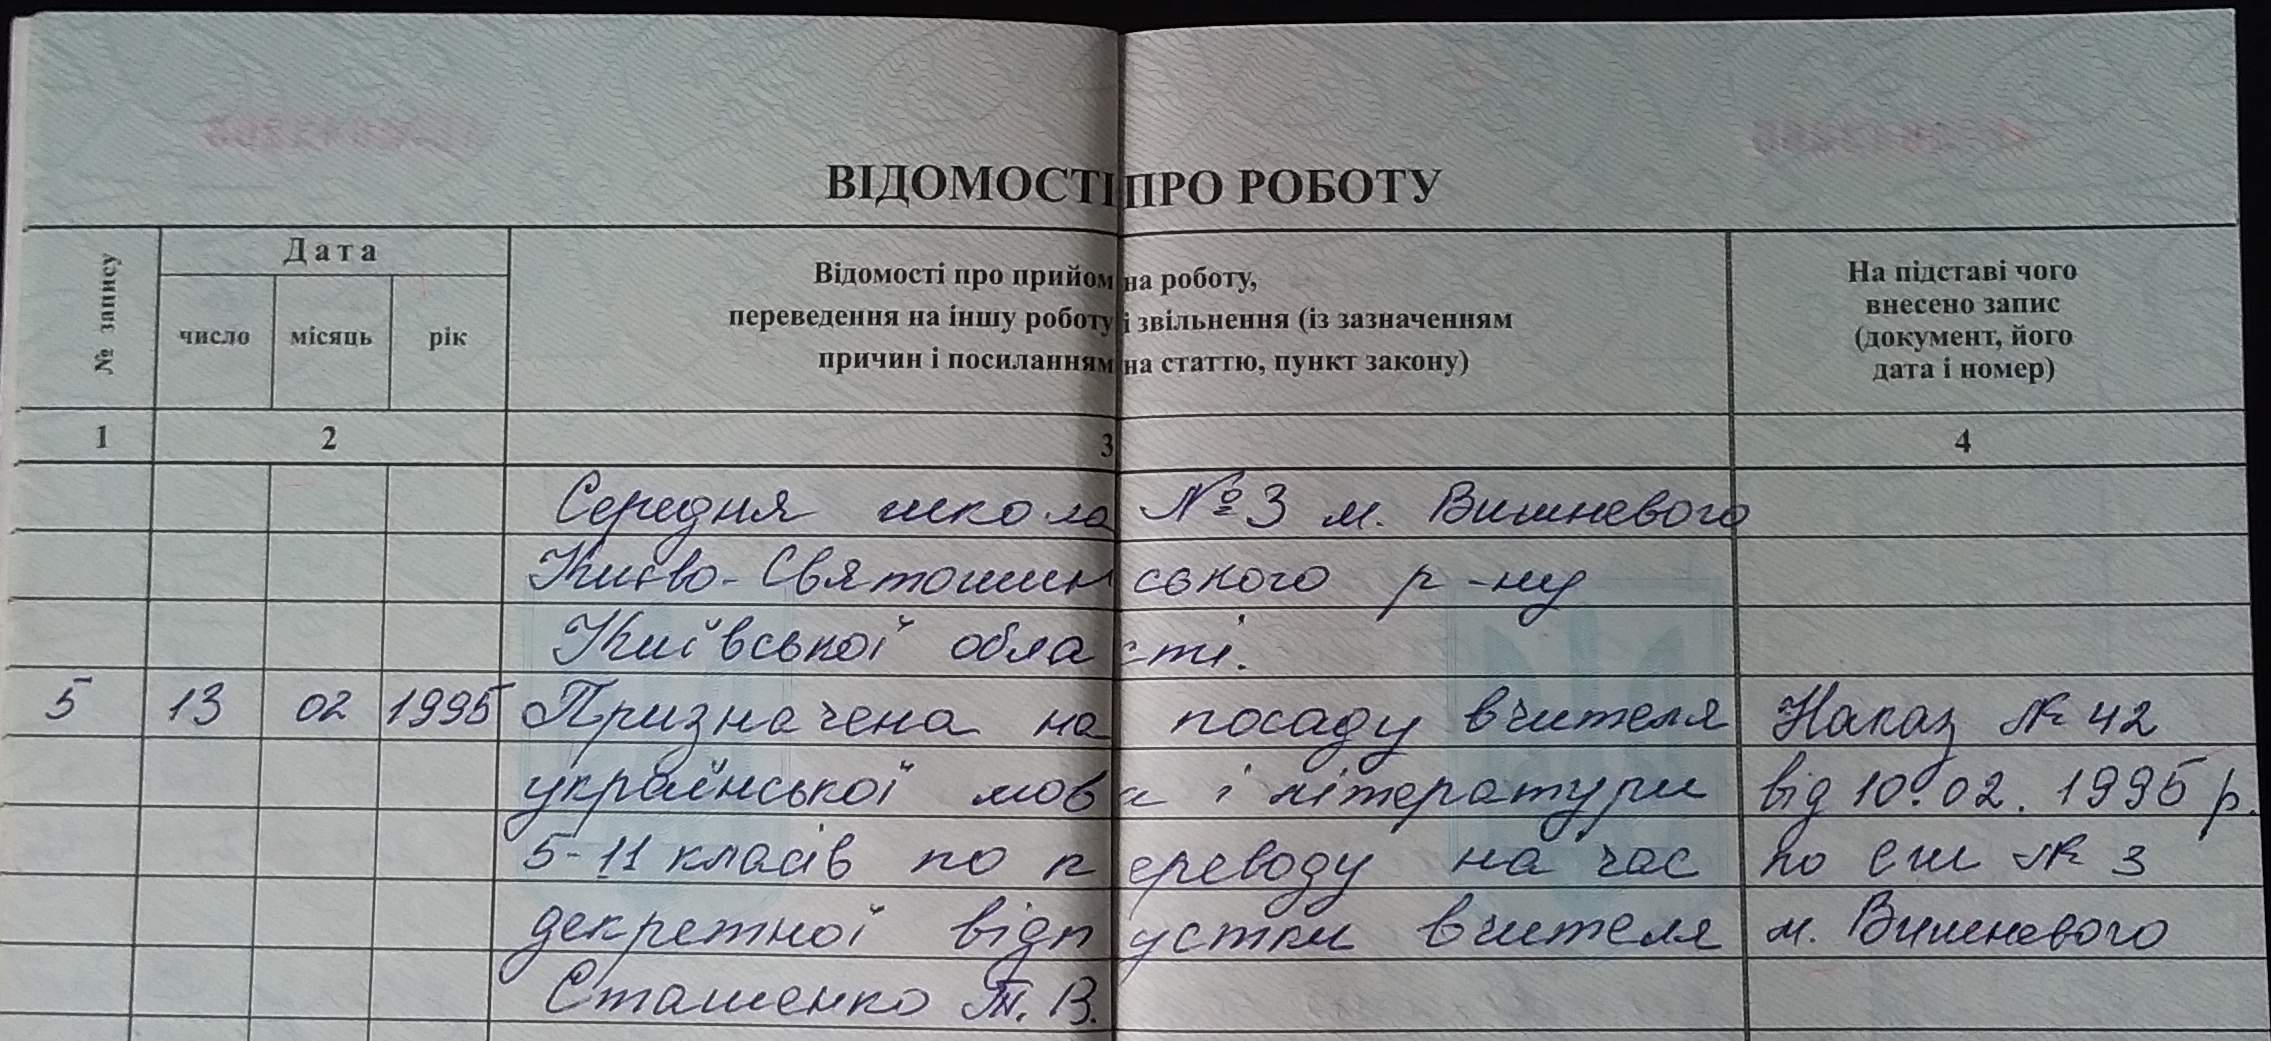 ВІДОМОСТІ ПРО РОБОТУ
№ запису
Дата
число місяць рік
Відомості про прийом на роботу,
переведення на іншу роботу і звільнення (із зазначенням
причин і посиланням на статтю, пункт закону)
На підставі чого
внесено запис
(документ, його
дата і номер)
1 2 3 4
Середня школа №3 м. Вишневого
Києво-Святошинського р-ну
Київської області.
5 13 02 1995 Призначена на посаду вчителя Наказ № 42
української мови і літератури від 10.02.1995 р.
5-11 класів по переводу на час по сш № 3
декретної відпустки вчителя м. Вишневого
Сташенко Т. В.